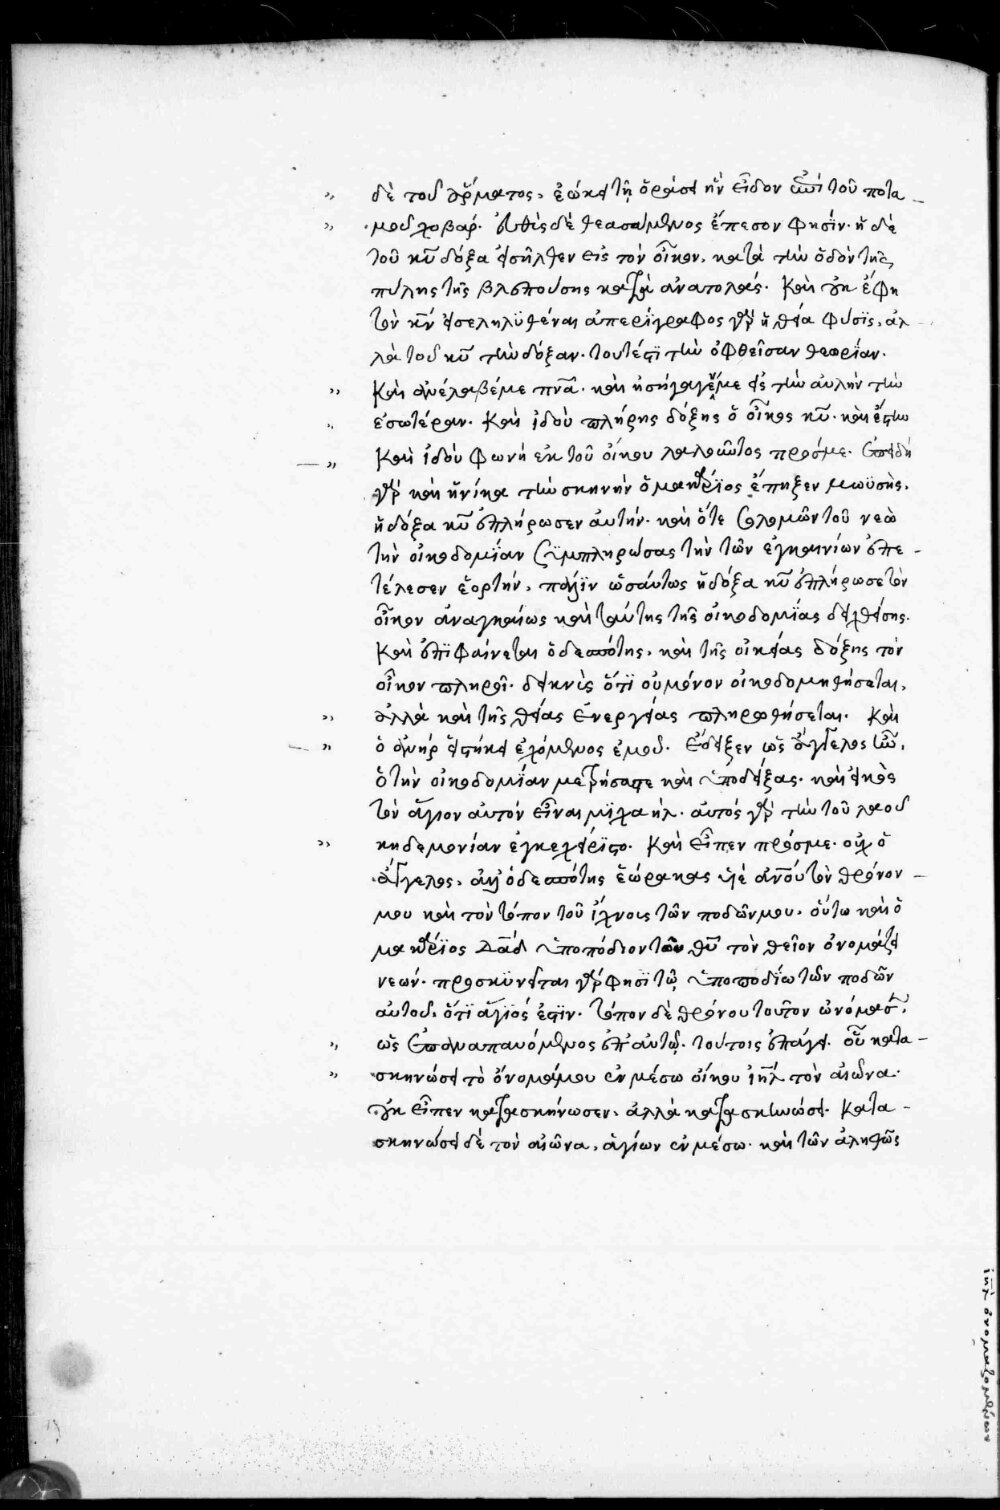 δὲ τοῦ ἅρματος, ἐῴκει τῇ ὁράσει ἣν εἶδον ἐπὶ τοῦ ποτα-
μοῦ χοβάρ. εὐθὺς δὲ θεασάμενος ἔπεσον φησίν. ἡ δὲ
τοῦ κῡ δόξα εἰσῆλθεν εἰς τὸν οἶκον, κατὰ τὴν ὁδὸν τῆς
πύλης τῆς βλεπούσης κατὰ ἀνατολάς. Καὶ οὐκ ἔφη
τὸν κ̄ν εἰσεληλυθέναι ἀπερίγραφος γὰρ ἡ θεία φύσις, ἀλ-
λὰ τοῦ κῡ τὴν δόξαν. τουτέστι τὴν ὀφθεῖσαν θεωρίαν.
Καὶ ἀνέλαβέ με πν̄ᾱ. καὶ εἰσήγαγέ με εἰς τὴν αὐλὴν τὴν
ἐσωτέραν. Καὶ ἰδοὺ πλήρης δόξης ὁ οἶκος κῡ. καὶ ἔστην
Καὶ ἰδοὺ φωνὴ ἐκ τοῦ οἴκου λαλοῦντος πρός με. Ἐπειδὴ
γὰρ καὶ ἡνίκα τὴν σκηνὴν ὁ μακάριος ἔπηξεν μωϋσῆς,
ἡ δόξα κῡ ἐπλήρωσεν αὐτήν. καὶ ὅτε σολομῶν τοῦ νεὼ
τὴν οἰκοδομίαν συμπληρώσας τὴν τῶν ἐγκαινίων ἐπε-
τέλεσεν ἑορτήν, πάλιν ὡσαύτως ἡ δόξα κῡ ἐπλήρωσε τὸν
οἶκον ἀναγκαίως καὶ ταύτης τῆς οἰκοδομίας δειχθείσης.
Καὶ ἐπιφαίνεται ὁ δεσπότης, καὶ τῆς οἰκείας δόξης τὸν
οἶκον πληροῖ. δεικνὺς ὅτι οὐ μόνον οἰκοδομηθήσεται,
ἀλλὰ καὶ τῆς θείας ἐνεργείας πληρωθήσεται. Καὶ
ὁ ἀνὴρ εἱστήκει ἐχόμενος ἐμοῦ. Ἔδειξεν ὡς ἄγγελος ἦν,
ὁ τὴν οἰκοδομίαν μετρήσας τε καὶ ὑποδείξας. καὶ εἰκὸς
τὸν ἅγιον αὐτὸν εἶναι μιχαήλ. αὐτὸς γὰρ τὴν τοῦ λαοῦ
κηδεμονίαν ἐγκεχείριστο. Καὶ εἶπεν πρός με. οὐχ ὁ
ἄγγελος, ἀλλ' ὁ δεσπότης ἑώρακας υἱὲ ἀνου τὸν θρόνον
μου καὶ τὸν τόπον τοῦ ἴχνους τῶν ποδῶν μου. οὕτω καὶ ὁ
μακάριος δᾱδ ὑποπόδιον τοῦ θῡ τὸν θεῖον ὀνομάζει
νεών. προσκυνεῖται γὰρ φησὶ τῷ ὑποποδίῳ τῶν ποδῶν
αὐτοῦ, ὅτι ἅγιός ἐστιν. τόπον δὲ θρόνου τοῦτον ὠνόμασεν,
ὡς ἐπαναπαυόμενος ἐπ' αὐτῷ. τούτοις ἐπάγει. οὗ κατα-
σκηνώσει τὸ ὄνομά μου ἐν μέσῳ οἴκου ιη̄λ τὸν αἰῶνα.
οὐκ εἶπεν κατασκήνωσεν, ἀλλὰ κατασκηνώσει. Κατα-
σκηνώσει δὲ τὸν αἰῶνα, ἁγίων ἐν μέσῳ. καὶ τῶν ἀληθῶς
ιη̄λ ὀνομαζομένων